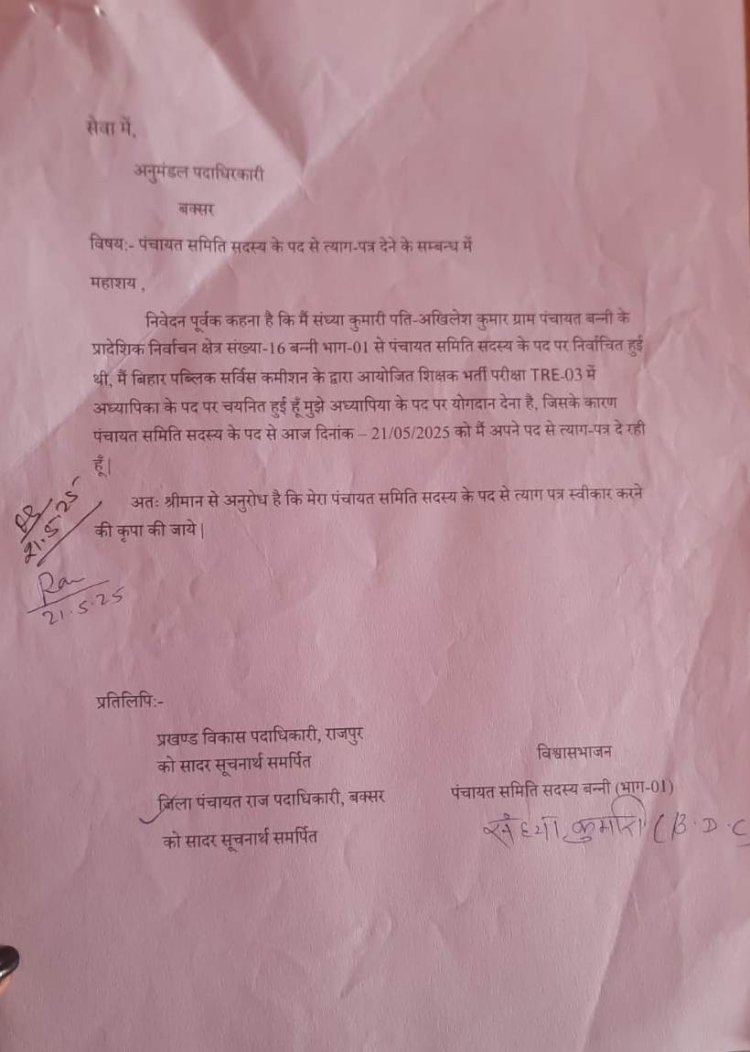 सेवा में,
अनुमंडल पदाधिरकारी
बक्सर
विषय:- पंचायत समिति सदस्य के पद से त्याग-पत्र देने के सम्बन्ध में
महाशय ,
निवेदन पूर्वक कहना है कि मैं संध्या कुमारी पति-अखिलेश कुमार ग्राम पंचायत बन्नी के
प्रादेशिक निर्वाचन क्षेत्र संख्या-16 बन्नी भाग-01 से पंचायत समिति सदस्य के पद पर निर्वाचित हुई
थी, मैं बिहार पब्लिक सर्विस कमीशन के द्वारा आयोजित शिक्षक भर्ती परीक्षा TRE-03 में
अध्यापिका के पद पर चयनित हुई हूँ मुझे अध्यापिया के पद पर योगदान देना है, जिसके कारण
पंचायत समिति सदस्य के पद से आज दिनांक – 21/05/2025 को मैं अपने पद से त्याग-पत्र दे रही
हूँ|
अतः श्रीमान से अनुरोध है कि मेरा पंचायत समिति सदस्य के पद से त्याग पत्र स्वीकार करने
की कृपा की जाये |
21.5.25
21.5.25
प्रतिलिपि:-
प्रखण्ड विकास पदाधिकारी, राजपुर
को सादर सूचनार्थ समर्पित
जिला पंचायत राज पदाधिकारी, बक्सर
को सादर सूचनार्थ समर्पित
विश्वासभाजन
पंचायत समिति सदस्य बन्नी (भाग-01)
संध्या कुमारी (B.D.C